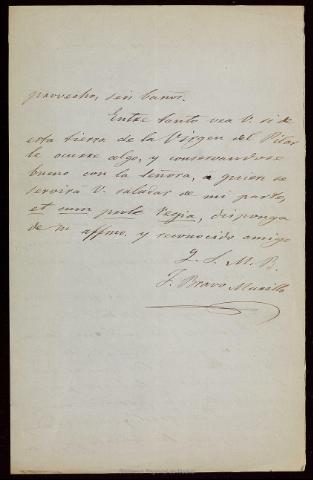 provecho, sin baños.
Entre tanto vea V. si de
esta tierra de la Virgen del Pilar
le ocurre algo, y conservandose
bueno con la señora, a quien se
servirá V. saludar de mi parte,
et cum prole regia, disponga
de su affmo. y reconocido amigo
Q. S. M. B.
F. Bravo Murillo